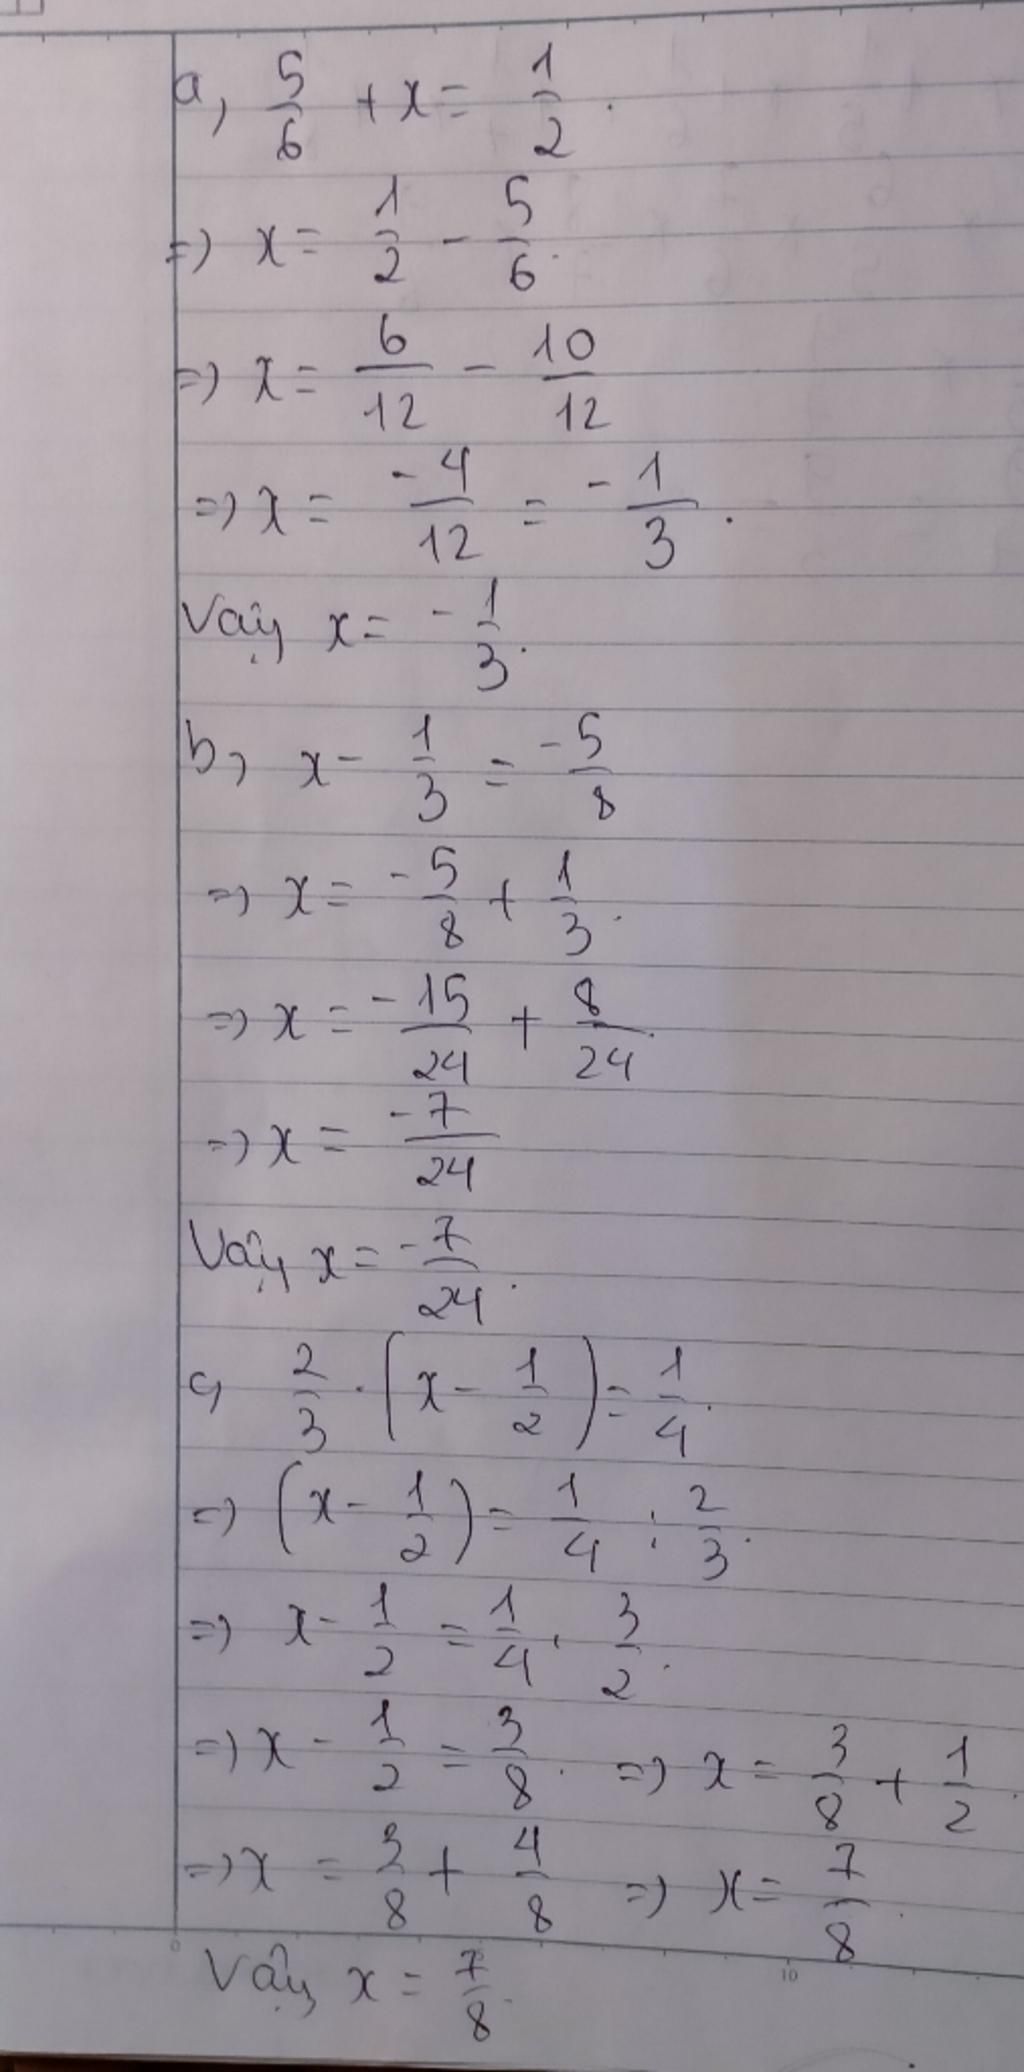 a, 5/6 + x = 1/2.
=) x = 1/2 - 5/6.
=) x = 6/12 - 10/12
=) x = -4/12 = -1/3.
Vậy x = -1/3.
b, x - 1/3 = -5/8
=) x = -5/8 + 1/3.
=) x = -15/24 + 8/24.
=) x = -7/24
Vậy x = -7/24.
c, 2/3 . (x - 1/2) = 1/4.
=) (x - 1/2) = 1/4 : 2/3.
=) x - 1/2 = 1/4 . 3/2.
=) x - 1/2 = 3/8. =) x = 3/8 + 1/2.
=) x = 3/8 + 4/8 =) x = 7/8.
0 10
Vậy x = 7/8.